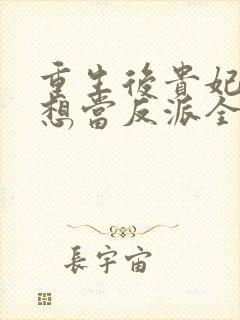 重生後貴妃
想當反派全
長宇宙